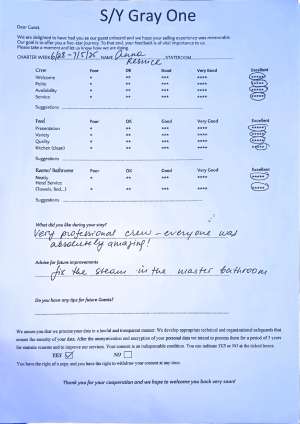 S/Y Gray One
Dear Guest,
We are delighted to have had you as our guest onboard and we hope your sailing experience was memorable.
Our goal is to offer you a five-star journey. To that end, your feedback is of vital importance to us.
Please take a moment and let us know how we are doing.
CHARTER WEEK 6/28-7/5/25 NAME Anne Resnick STATEROOM
Crew Poor OK Good Very Good Excellent
Welcome * ** *** **** *****
Polite * ** *** **** *****
Availability * ** *** **** *****
Service * ** *** **** *****
Suggestions
Food Poor OK Good Very Good Excellent
Presentation * ** *** **** *****
Variety * ** *** **** *****
Quality * ** *** **** *****
Kitchen (clean) * ** *** **** *****
Suggestions
Room/ Bathroom Poor OK Good Very Good Excellent
Neatly * ** *** **** *****
Hotel Service
Closets, Bed...) * ** *** **** *****
Suggestions
What did you like during your stay?
Very professional crew - everyone was
absolutely amazing!
Advise for future improvements
fix the steam in the master bathroom
Do you have any tips for future Guests?
We assure you that we process your data in a lawful and transparent manner. We develop appropriate technical and organizational safeguards that
ensure the security of your data. After the anonymization and encryption of your personal data we intend to process them for a period of 5 years
for statistic reasons and to improve our services. Your consent is an indispensable condition. You can indicate YES or NO at the ticked boxes.
YES NO
You have the right of page and you have the right to withdraw your consent at any time.
Thank you for your cooperation and we hope to welcome you back very soon!